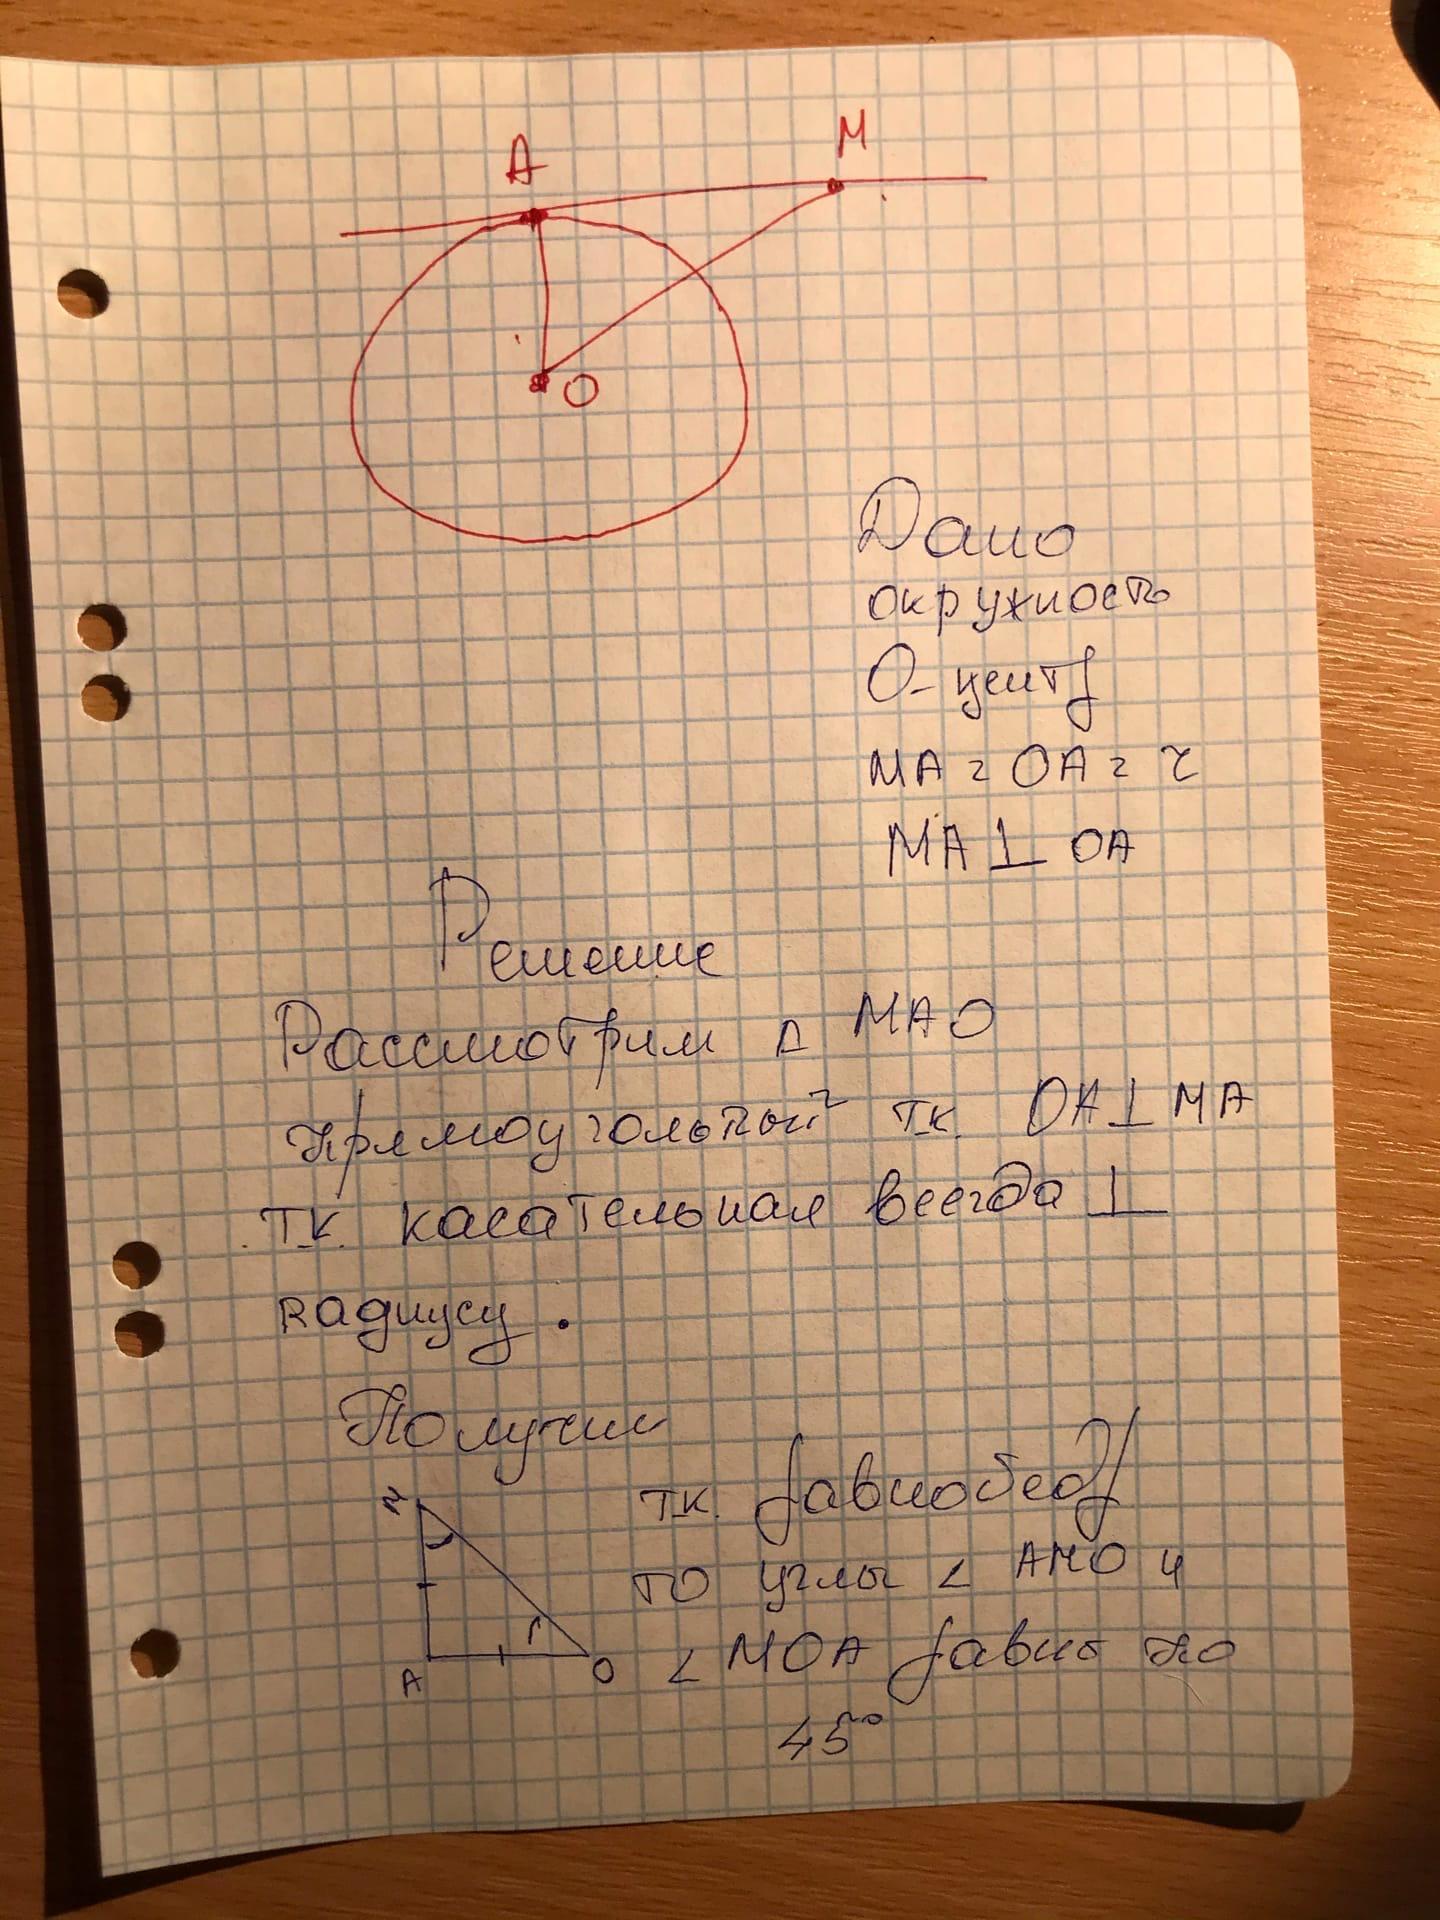 A
M
O
Дано
окружность
О - центр
MA = OA = r
MA ⊥ OA
Решение
Рассмотрим Δ MAO
прямоугольный тк. OA ⊥ MA
тк. касательная всегда ⊥
радиусу .
Получим
M
A
O
тк. равнобедр
то углы ∠ AMO и
∠ MOA равны по
45°